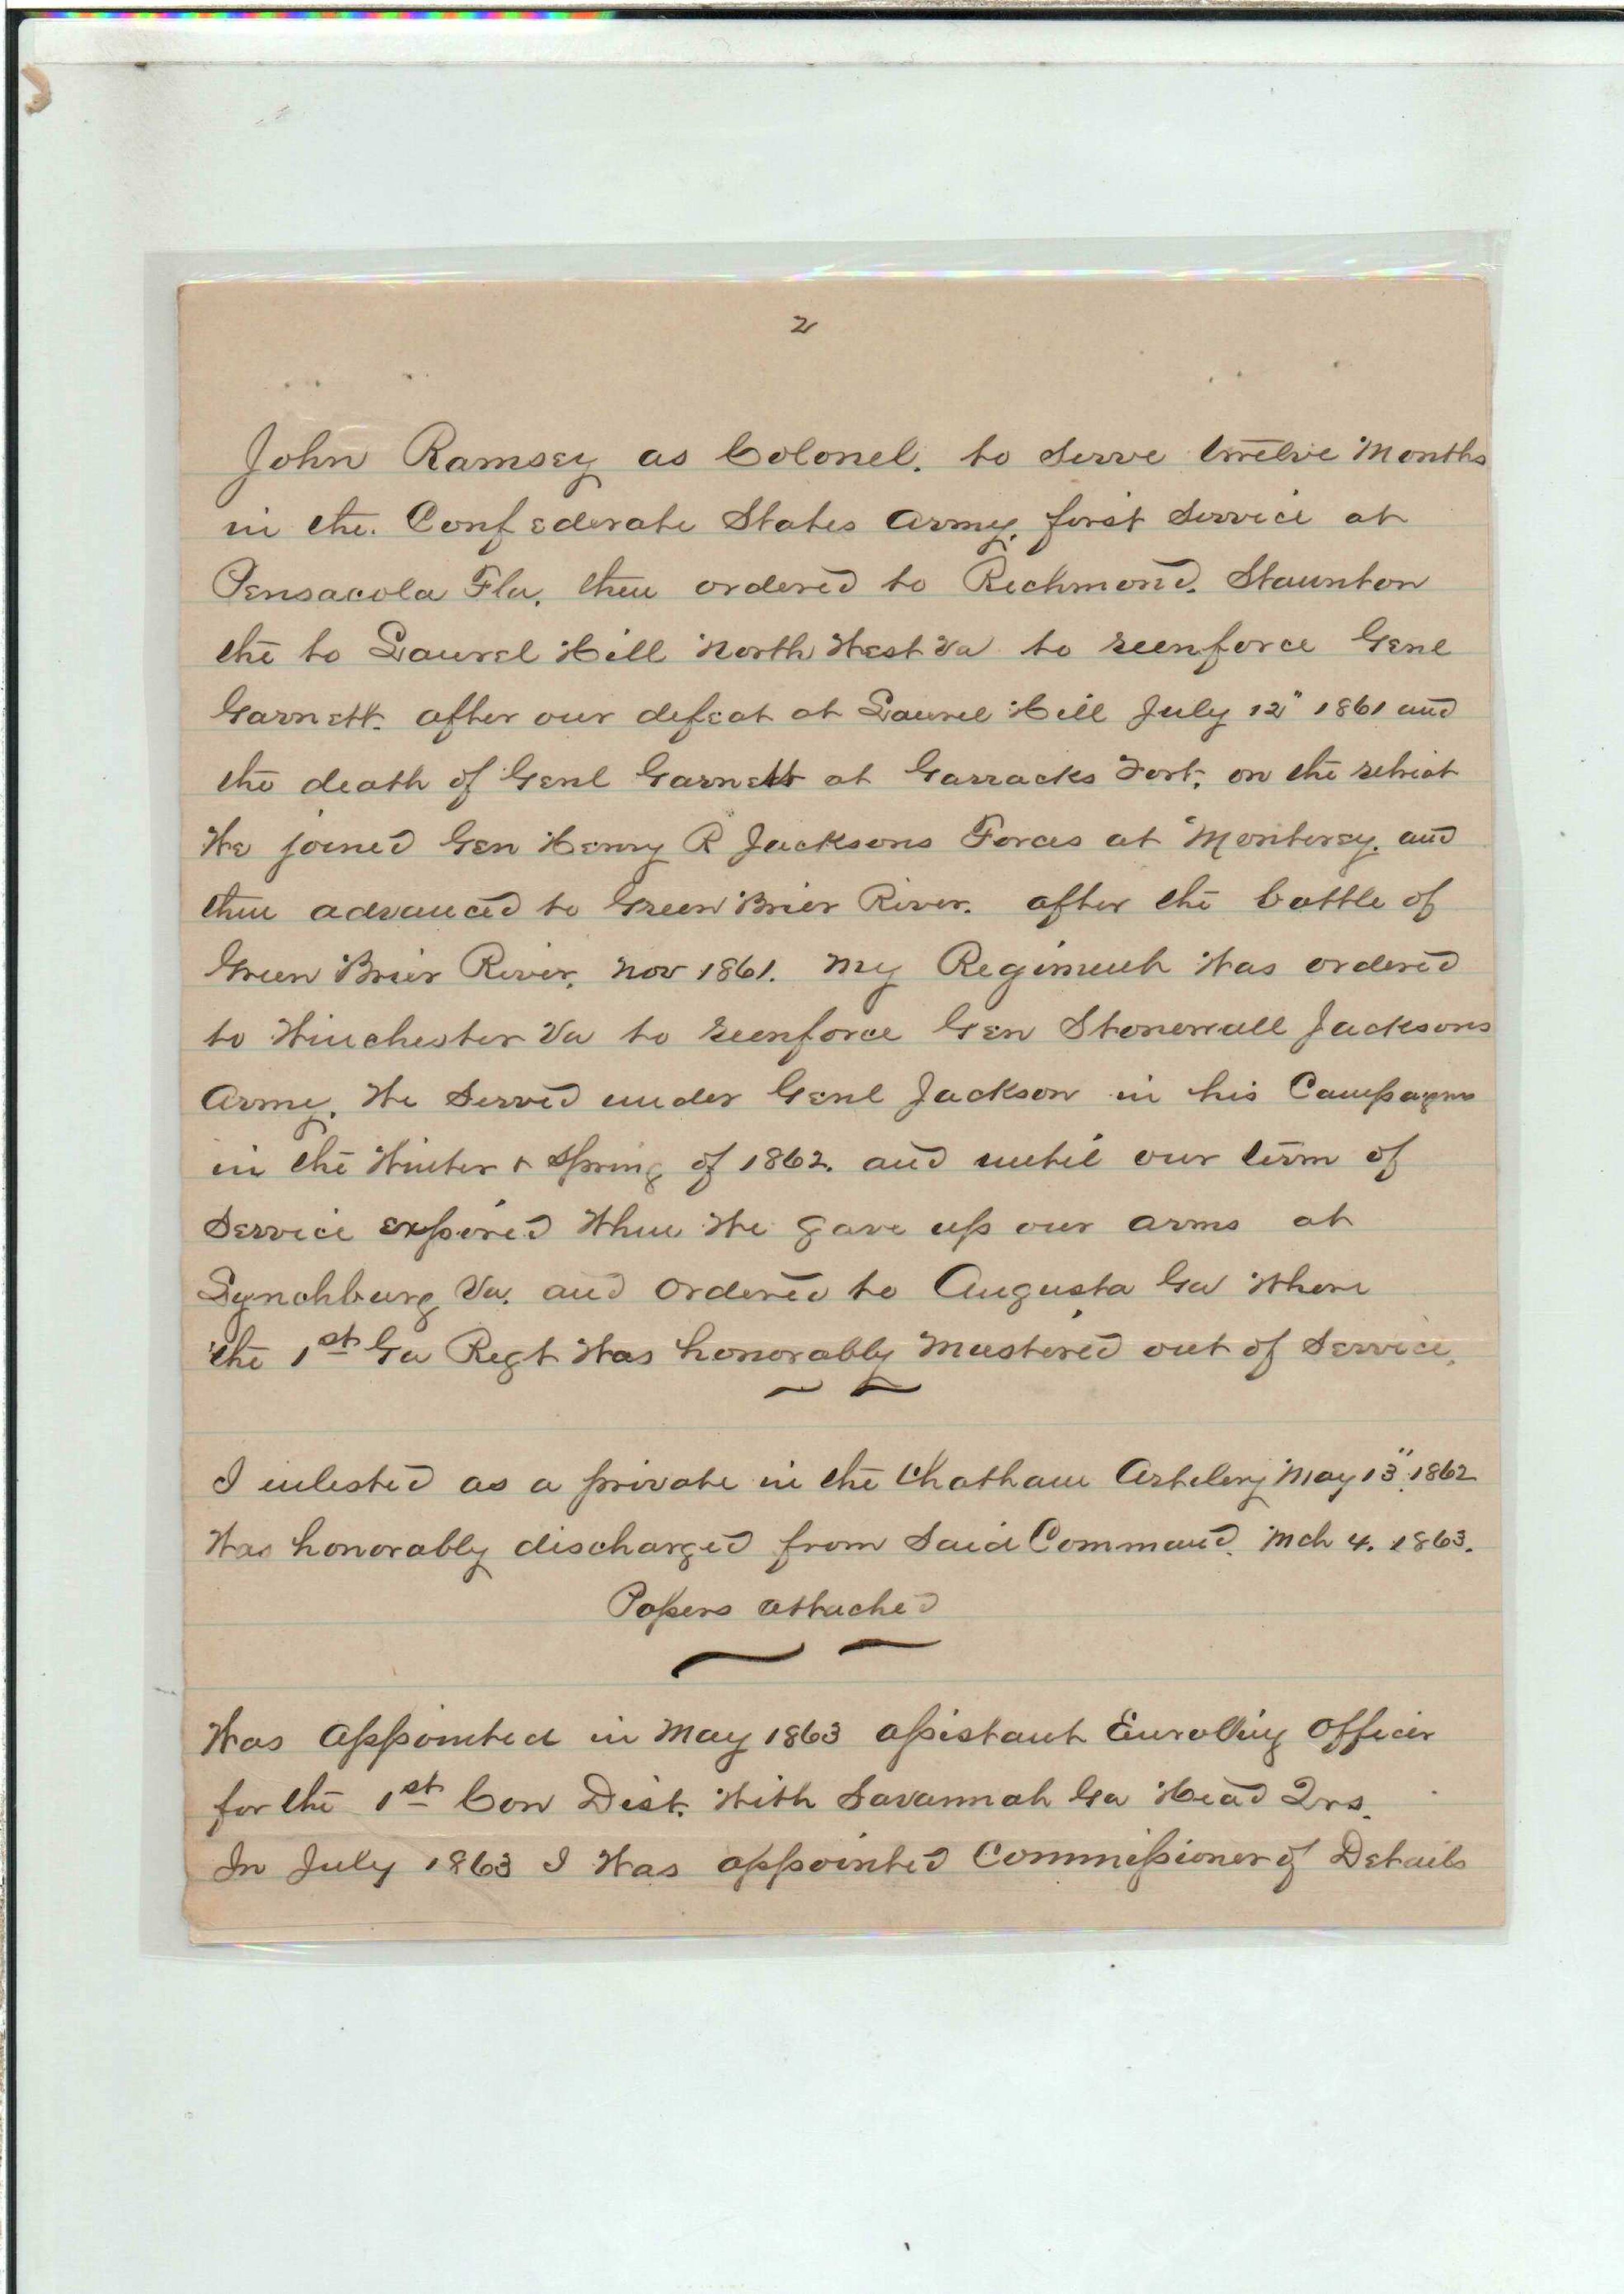 2
John Ramsey as Colonel. to serve twelve Months
in the. Confederate States Army. first Service at
Pensacola Fla. then ordered to Richmond. Staunton
the to Laurel Hill North West Va to reenforce Genl
Garnett. after our defeat at Laurel Hill July 12" 1861 and
the death of Genl Garnett at Garracks Fort, on the retreat
We joined Gen Henry R Jacksons Forces at Monterey. and
then advanced to Green Brier River. after the battle of
Green Brier River, Nov 1861. My Regiment Was ordered
to Winchester Va to reenforce Gen Stonewall Jacksons
Army. We Served under Genl Jackson in his Campagns
in the Winter & Spring of 1862. and until our term of
Service expired When We gave up our arms at
Lynchburg Va. and ordered to Augusta Ga Where
the 1st Ga Regt Was honorably Mustered out of Service.
I inlested as a private in the Chatham Artilery May 13", 1862
Was honorably discharged from Said Command. Mch 4. 1863.
Papers attached
Was appointed in May 1863 assistant Enrolling Officer
for the 1st Con Dist. With Savannah Ga Head Qrs.
In July 1863 I Was appointed Commissioner of Details